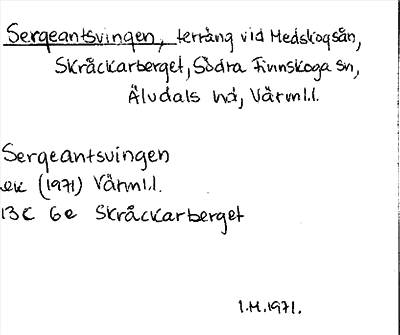 Sergeantsvingen, terräng vid Medskogsån,
Skråckarberget, Södra Finnskoga sn,
Älvdals hd, Värml.l.
Sergeantsvingen
ek (1971) Värml.l.
13C 6e Skråckarberget
1.M.1971.